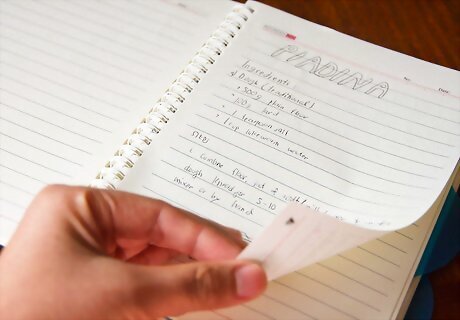 PIADINA
No.
Date.
Ingredients
Dough (traditional)
• 500g plain flour
• 120g lard
• 1 teaspoon salt
• 1 cup lukewarm water
STEPS
1. Combine flour,
dough 5-10
mixer or by hand